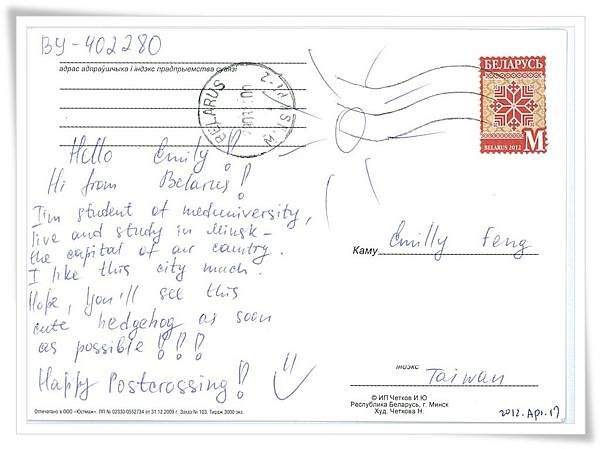 BY-402280
адрас адпраўшчыка і індэкс прадпрыемства сувязі
BELARUS
MINSK
БЕЛАРУСЬ
BELARUS 2012
M
Hello Emily!
Hi from Belarus!
I'm student of meduniversity,
live and study in Minsk –
the capital of our country.
I like this city much.
Hope, you'll see this
cute hedgehog as soon
as possible!!!
Happy Postcrossing!
Каму Emilly Feng
індэкс Taiwan
© ИП Четков И.Ю
Республика Беларусь, г. Минск
Худ. Четкова Н.
Отпечатано в ООО «Юстмаж». ЛП № 02330/0552734 от 31.12.2009 г. Заказ № 103. Тираж 3000 экз.
2012. Apr. 17